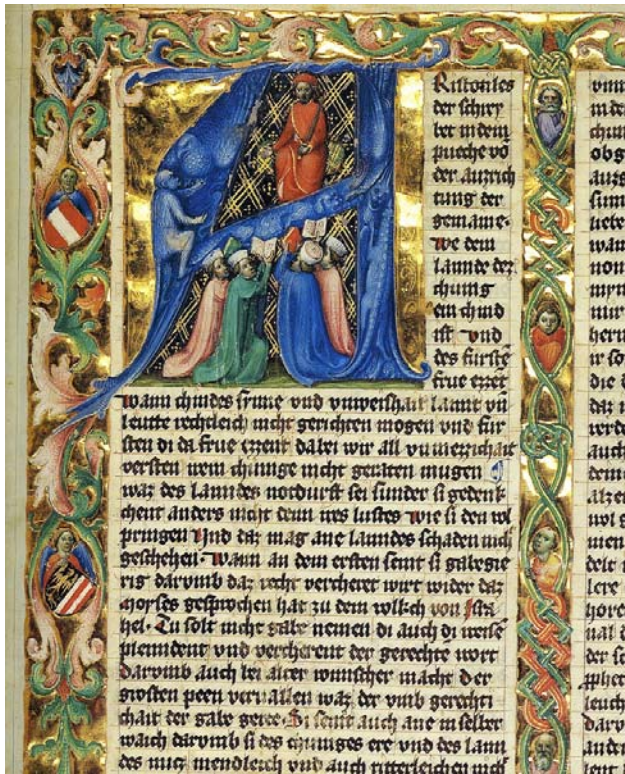 Ristotiles
der schrei
bet in dem
pueche vo
der auzrich
tung der
gemaine.
We dem
lannde dez
chunig
ein chind
ist vnd
des furste
frue ezzet
wann chindes sinne vnd vnweishait lannt vn
leutte rechtleich nicht gerichten mogen vnd fur
sten di da frue ezzent dabei wir all vnmezzichait
versten wem chunige nicht geraten mugen
waz des lanndes notdurft sei sunder si gedenk
chent anders nicht denn ires lustes Wie si den vol
pringen Vnd daz mag ane lanndes schaden nich
geschehen. Wann an dem ersten seint si gabegie
rig darvmb daz recht vercheret wirt wider daz
Moyses gesprochen hat zu dem vollch von Isra
hel. Du solt nicht gabe nemen di auch di weise
plenndent vnd vercherent der gerechte wort
Darvmb auch bei alter wunscher macht der
grosten peen vervallen waz der vmb gerechti
chait der gabe gerte. Si seint auch ane in selber
waich darvmb si des chuniges ere vnd des lann
des nucz mendleich vnd auch ritterleichen nich
vnm
in de
chun
obg
auzg
sunn
liebe
wan
non
myn
mir
hern
ir so
die d
daz n
verde
auch
dem
alz e
wol g
men
delt
lere
horet
mal d
der s
pphet
leuch
darv
ander
lent